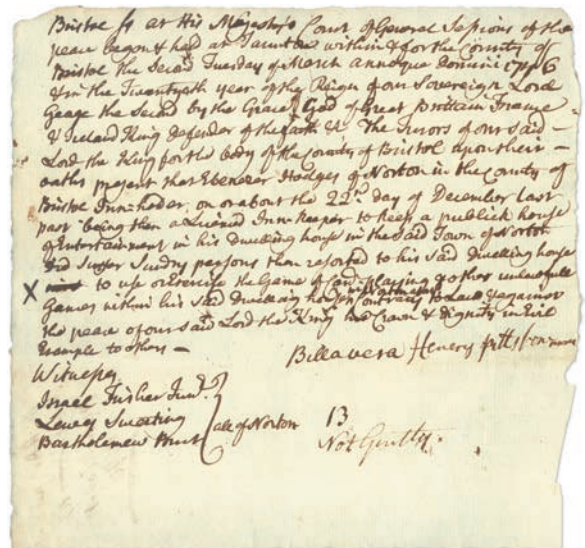 Bristol ss At His Majestys Court of General Sessions of the
peace begun & held at Taunton within & for the County of
Bristol the Second Tuesday of March annoque Domini 1746
& In the Twentyeth year of the Reign of our Sovereign Lord
George the Second by the Grace of God of Great Brittain France
& Ireland King Defender of the faith &c The Jurors of our Said
Lord the King for the body of the County of Bristol upon their
oaths present that Ebenezer Hodges of Norton in the County of
Bristol Inn-holder, on or about the 22nd day of December last
past being then a Licensed Inn-keeper to keep a publick house
of Entertainment in his Dwelling house in the Said Town of Norton
Did Suffer Sundry persons then resorted to his Said Dwelling house
X to use or Exercise the Game of Card-playing & other unlawfull
Games within his Said Dwelling house Contrary to Law & against
the peace of our Said Lord the King his Crown & Dignity in Evil
Example to others —
Billa vera Henery
Witnesses
Israel Fisher Junr.
Lewes Sweeting
Bartholemew all of Norton
13
Not Guilty